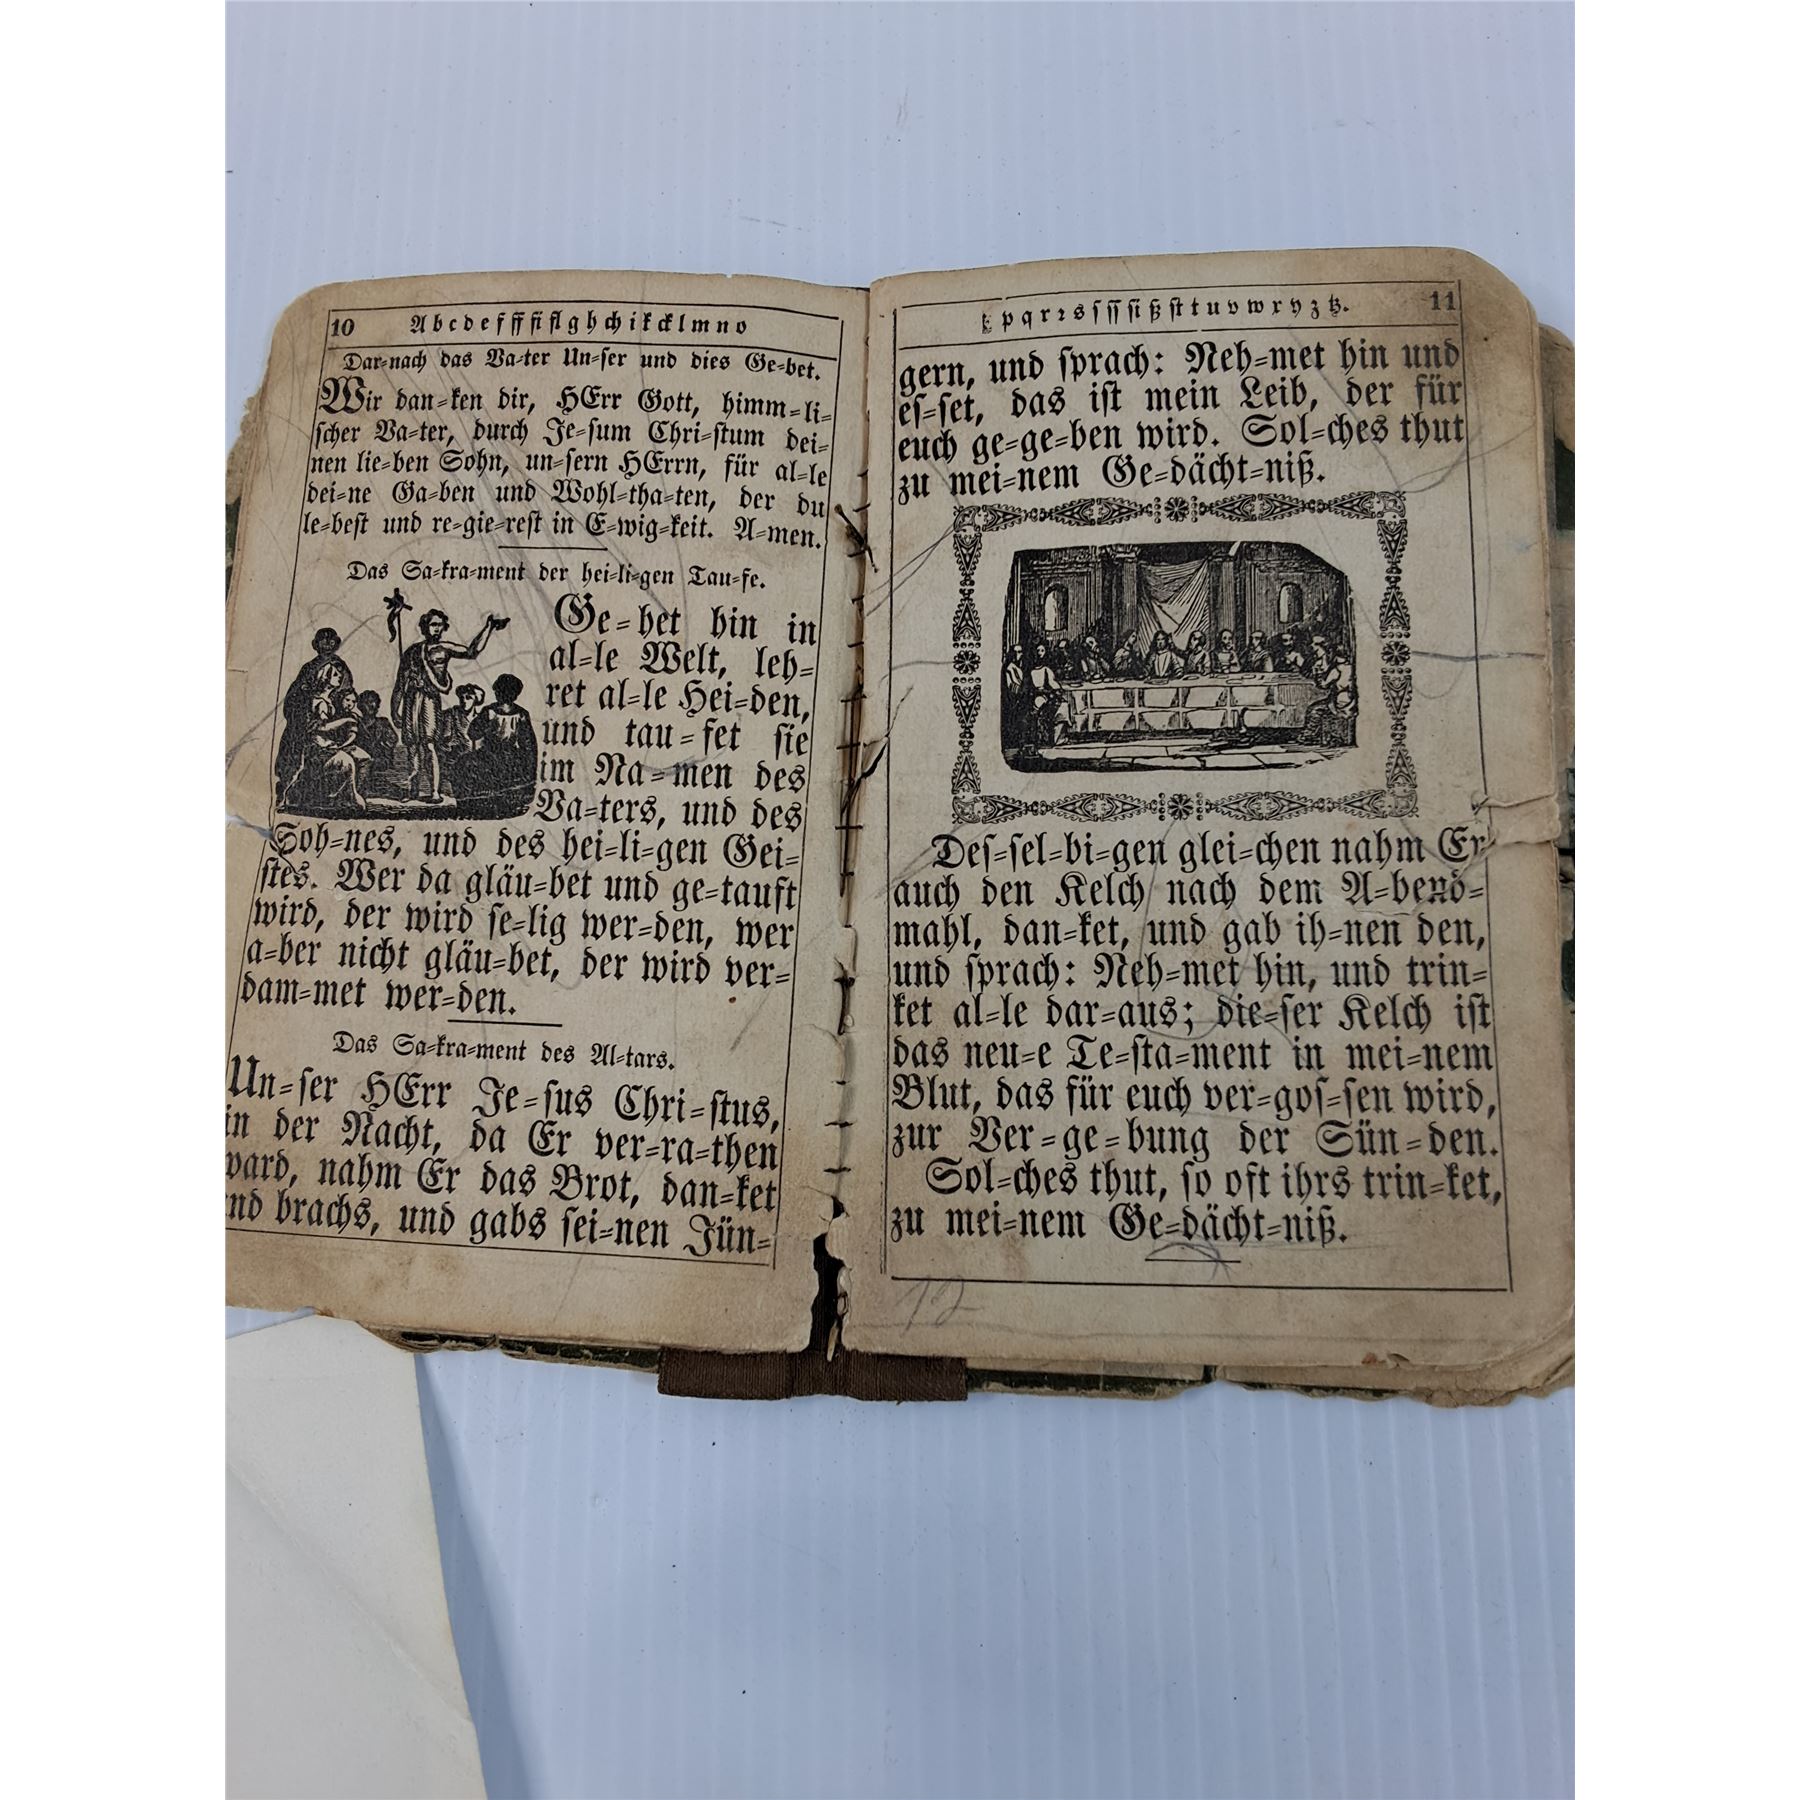 10 A b c d e f ff fi fl g h ch i k ck l m n o
Dar-nach das Va-ter Un-ser und dies Ge-bet.
Wir dan-ken dir, HErr Gott, himm-li-
scher Va-ter, durch Je-sum Chri-stum dei-
nen lie-ben Sohn, un-sern HErrn, für al-le
dei-ne Ga-ben und Wohl-tha-ten, der du
le-best und re-gie-rest in E-wig-keit. A-men.
Das Sa-kra-ment der hei-li-gen Tau-fe.
Ge-het hin in
al-le Welt, leh-
ret al-le Hei-den,
und tau-fet sie
im Na-men des
Va-ters, und des
Soh-nes, und des hei-li-gen Gei-
stes. Wer da gläu-bet und ge-tauft
wird, der wird se-lig wer-den, wer
a-ber nicht gläu-bet, der wird ver-
dam-met wer-den.
Das Sa-kra-ment des Al-tars.
Un-ser HErr Je-sus Chri-stus,
in der Nacht, da Er ver-ra-then
ward, nahm Er das Brot, dan-ket
nd brachs, und gabs sei-nen Jün-
p q r ꝛ s ſ ſſ ſi ß ſt t u v w x y z tz. 11
gern, und sprach: Neh-met hin und
es-set, das ist mein Leib, der für
euch ge-ge-ben wird. Sol-ches thut
zu mei-nem Ge-dächt-niß.
Des-sel-bi-gen glei-chen nahm Er
auch den Kelch nach dem A-bend-
mahl, dan-ket, und gab ih-nen den,
und sprach: Neh-met hin, und trin-
ket al-le dar-aus; die-ser Kelch ist
das neu-e Te-sta-ment in mei-nem
Blut, das für euch ver-gos-sen wird,
zur Ver-ge-bung der Sün-den.
Sol-ches thut, so oft ihrs trin-ket,
zu mei-nem Ge-dächt-niß.
12